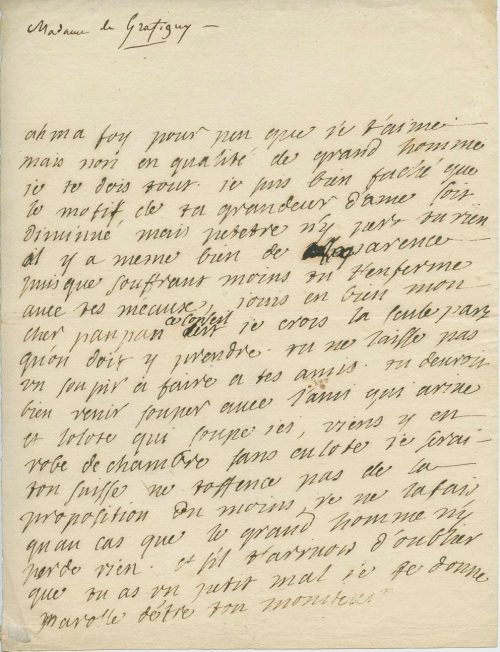 Madame de Grafigny —
ah ma foy pour peu que je t'aime
mais non en qualité de grand homme
je te dois tout. je suis bien faché que
le motif de ta grandeur d'ame soit
diminué, mais petetre n'y pert tu rien
il y a meme bien de parence
puisque souffrant moins tu t'enferme
avec tes meaux, jouis en bien mon
cher panpan ce conseil je crois la seule part
qu'on doit y prendre. tu ne laisse pas
un soupir a faire a tes amis. tu devrois
bien venir souper avec l'ami qui arive
et lolote qui soupe ici, viens y en
robe de chambre sans culote je serai
ton suisse ne t'offence pas de la
proposition du moins, je ne la fais
qu'au cas que le grand homme n'y
perde rien. et s'il t'arrivois d'oublier
que tu as un petit mal je te donne
parolle d'être ton moniteur